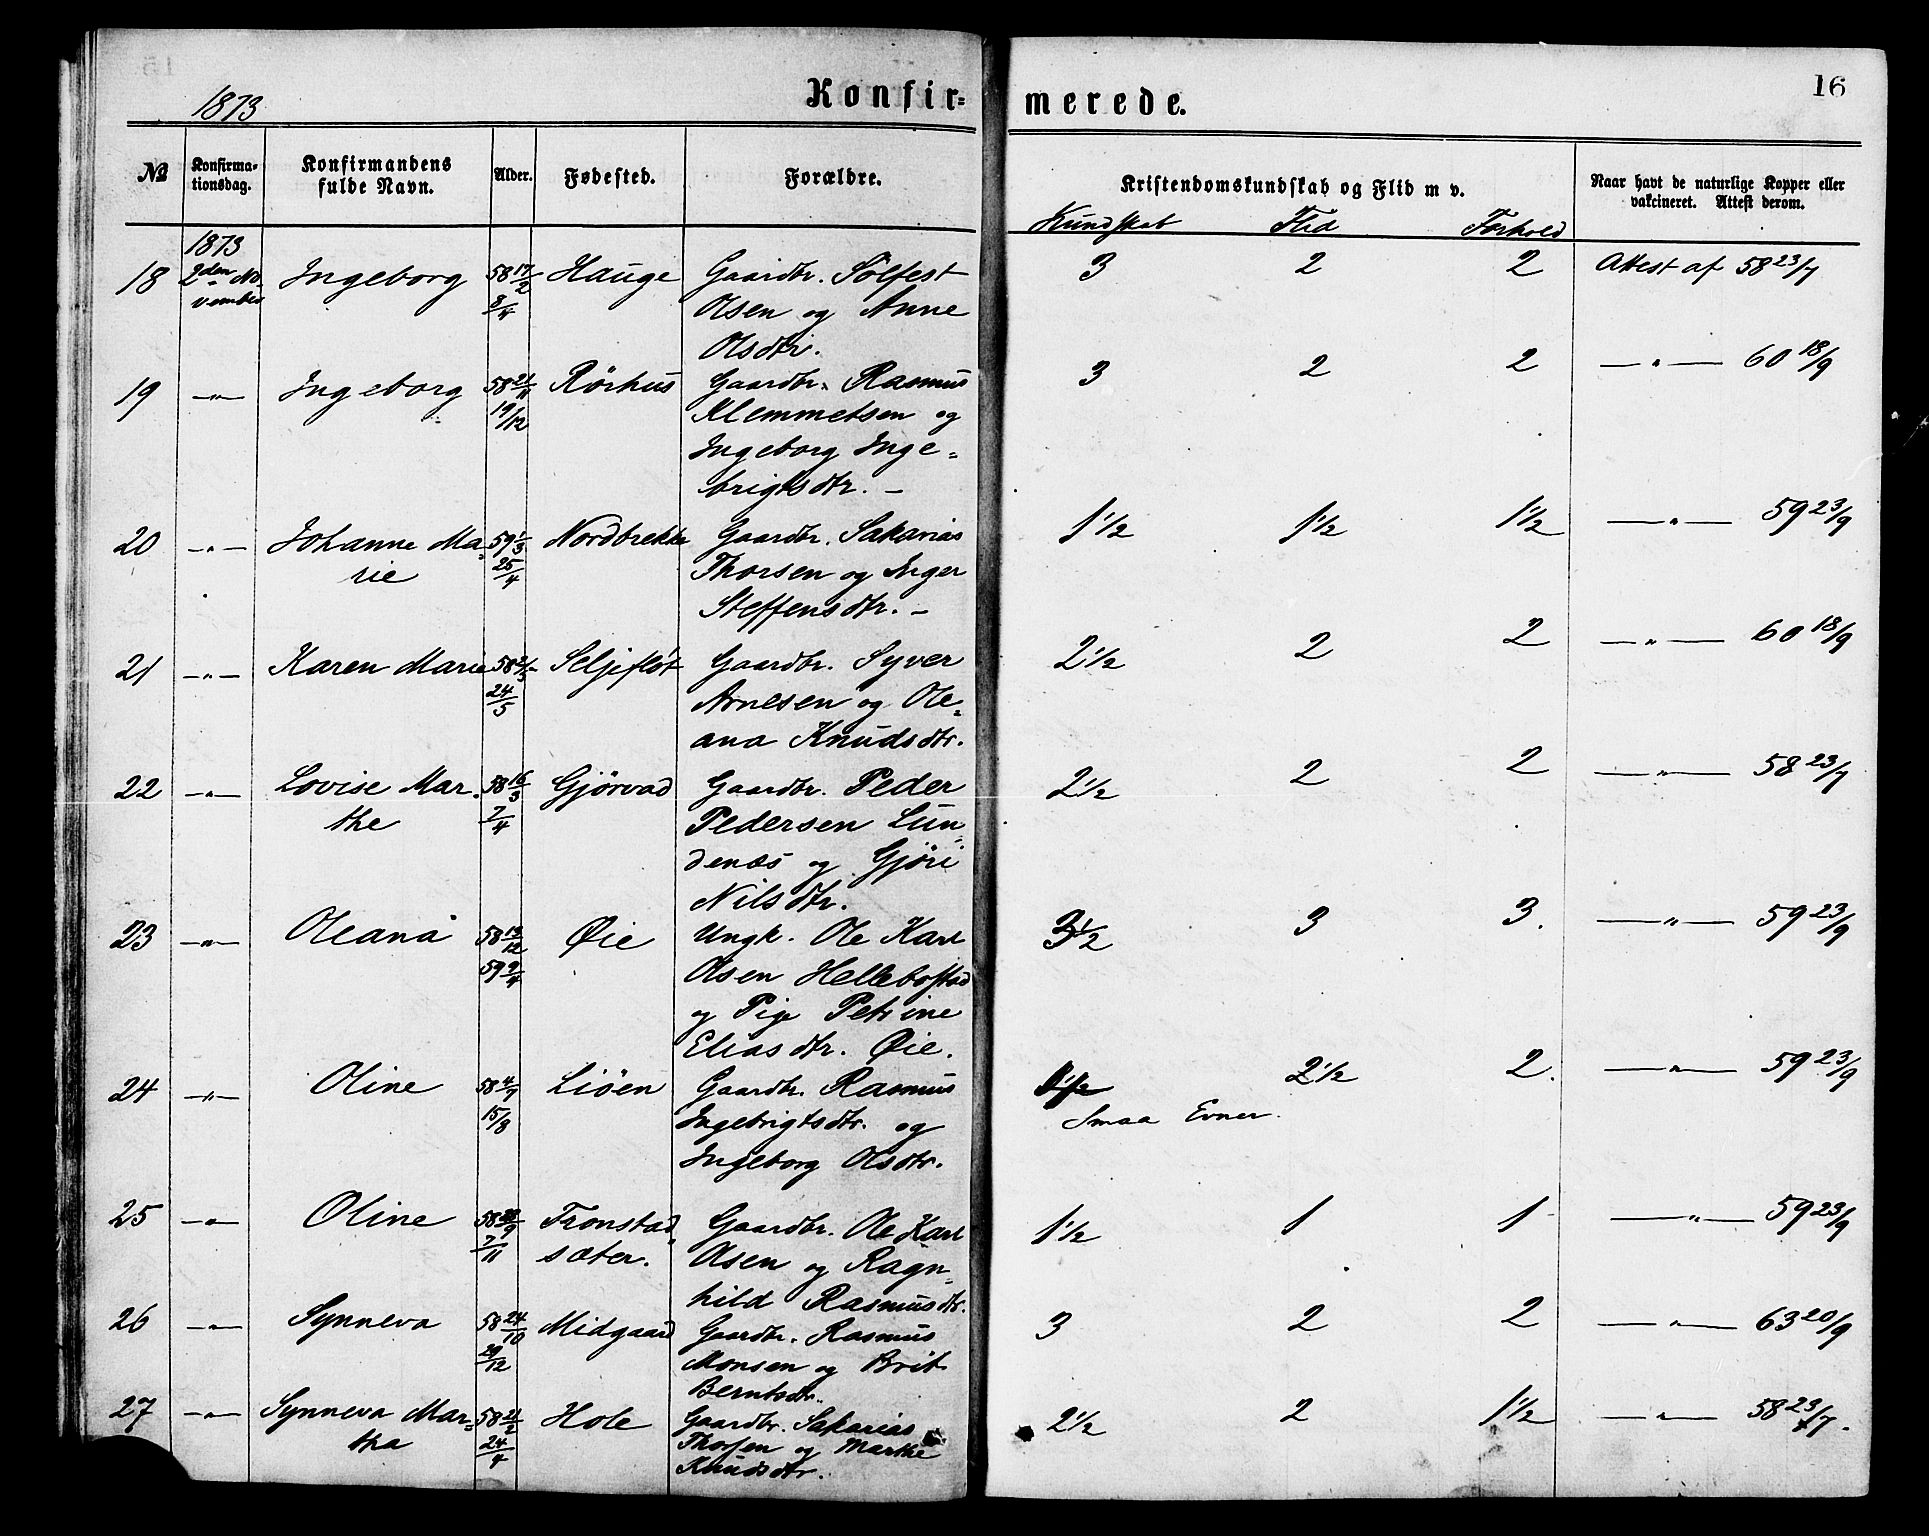 1873
Konfir=
merede.
16
№
Konfirma-
tionsdag.
Konfirmandens
fulde Navn.
Alder.
Fødested.
Forældre.
Kristendomskundskab og Flid m v.
Naar havt de naturlige Kopper eller
vakcineret. Attest derom.
Kundskab Flid Forhold
1873
18 2den No- Ingeborg 58 17/2 Hauge Gaardbr. Solfest 3 2 2 Attest af 58 23/7
vember 8/4 Olsen og Anne
Olsdtr.
19 —"— Ingeborg 58 21/11 Rørhus Gaardbr. Rasmus 3 2 2 —"— 60 18/9
19/12 Klemmetsen og
Ingeborg Inge=
brigtsdtr. –
20 —"— Johanne Ma= 59 1/3 Nordbrekke Gaardbr. Sakarias 1½ 1½ 1½ —"— 59 23/9
rie 25/4 Thorsen og Inger
Steffensdtr. –
21 —"— Karen Marie 58 2/5 Seljeflot Gaardbr. Syver 2½ 2 2 —"— 60 18/9
24/5 Arnesen og Ole=
ana Knudsdtr.
22 —"— Lovise Mar- 58 16/3 Gjørvad Gaardbr. Peder 2½ 2 2 —"— 58 23/7
the 7/4 Pedersen Lun=
denæs og Gjøri
Nilsdtr.
23 —"— Oleana 58 13/12 Øie Ungk. Ole Karl 3½ 3 3. —"— 59 23/9
59 9/4 Olsen Hellebostad
og Pige Petrine
Eliasdtr. Øie.
24 —"— Oline 58 4/7 Liøen Gaardbr. Rasmus 2½ 2. —"— 59 23/9
15/8 Ingebrigtsdtr. og Smaa Evner.
Ingeborg Olsdtr.
25 —"— Oline 58 /9 Tronstad= Gaardbr. Ole Karl 1½ 1 1 —"— 59 23/9
7/11 sæter. Olsen og Ragn=
hild Rasmusdtr.
26 —"— Synneva 58 24/10 Midgaard Gaardbr. Rasmus 3 2 2 —"— 63 20/9
29/12 Monsen og Brit
Berntsdtr.
27 —"— Synneva Mar= 58 21/2 Hole Gaardbr. Sakarias 2½ 2 1½ —"— 58 23/7.
tha 24/4 Thorsen og Marthe
Knudsdtr.